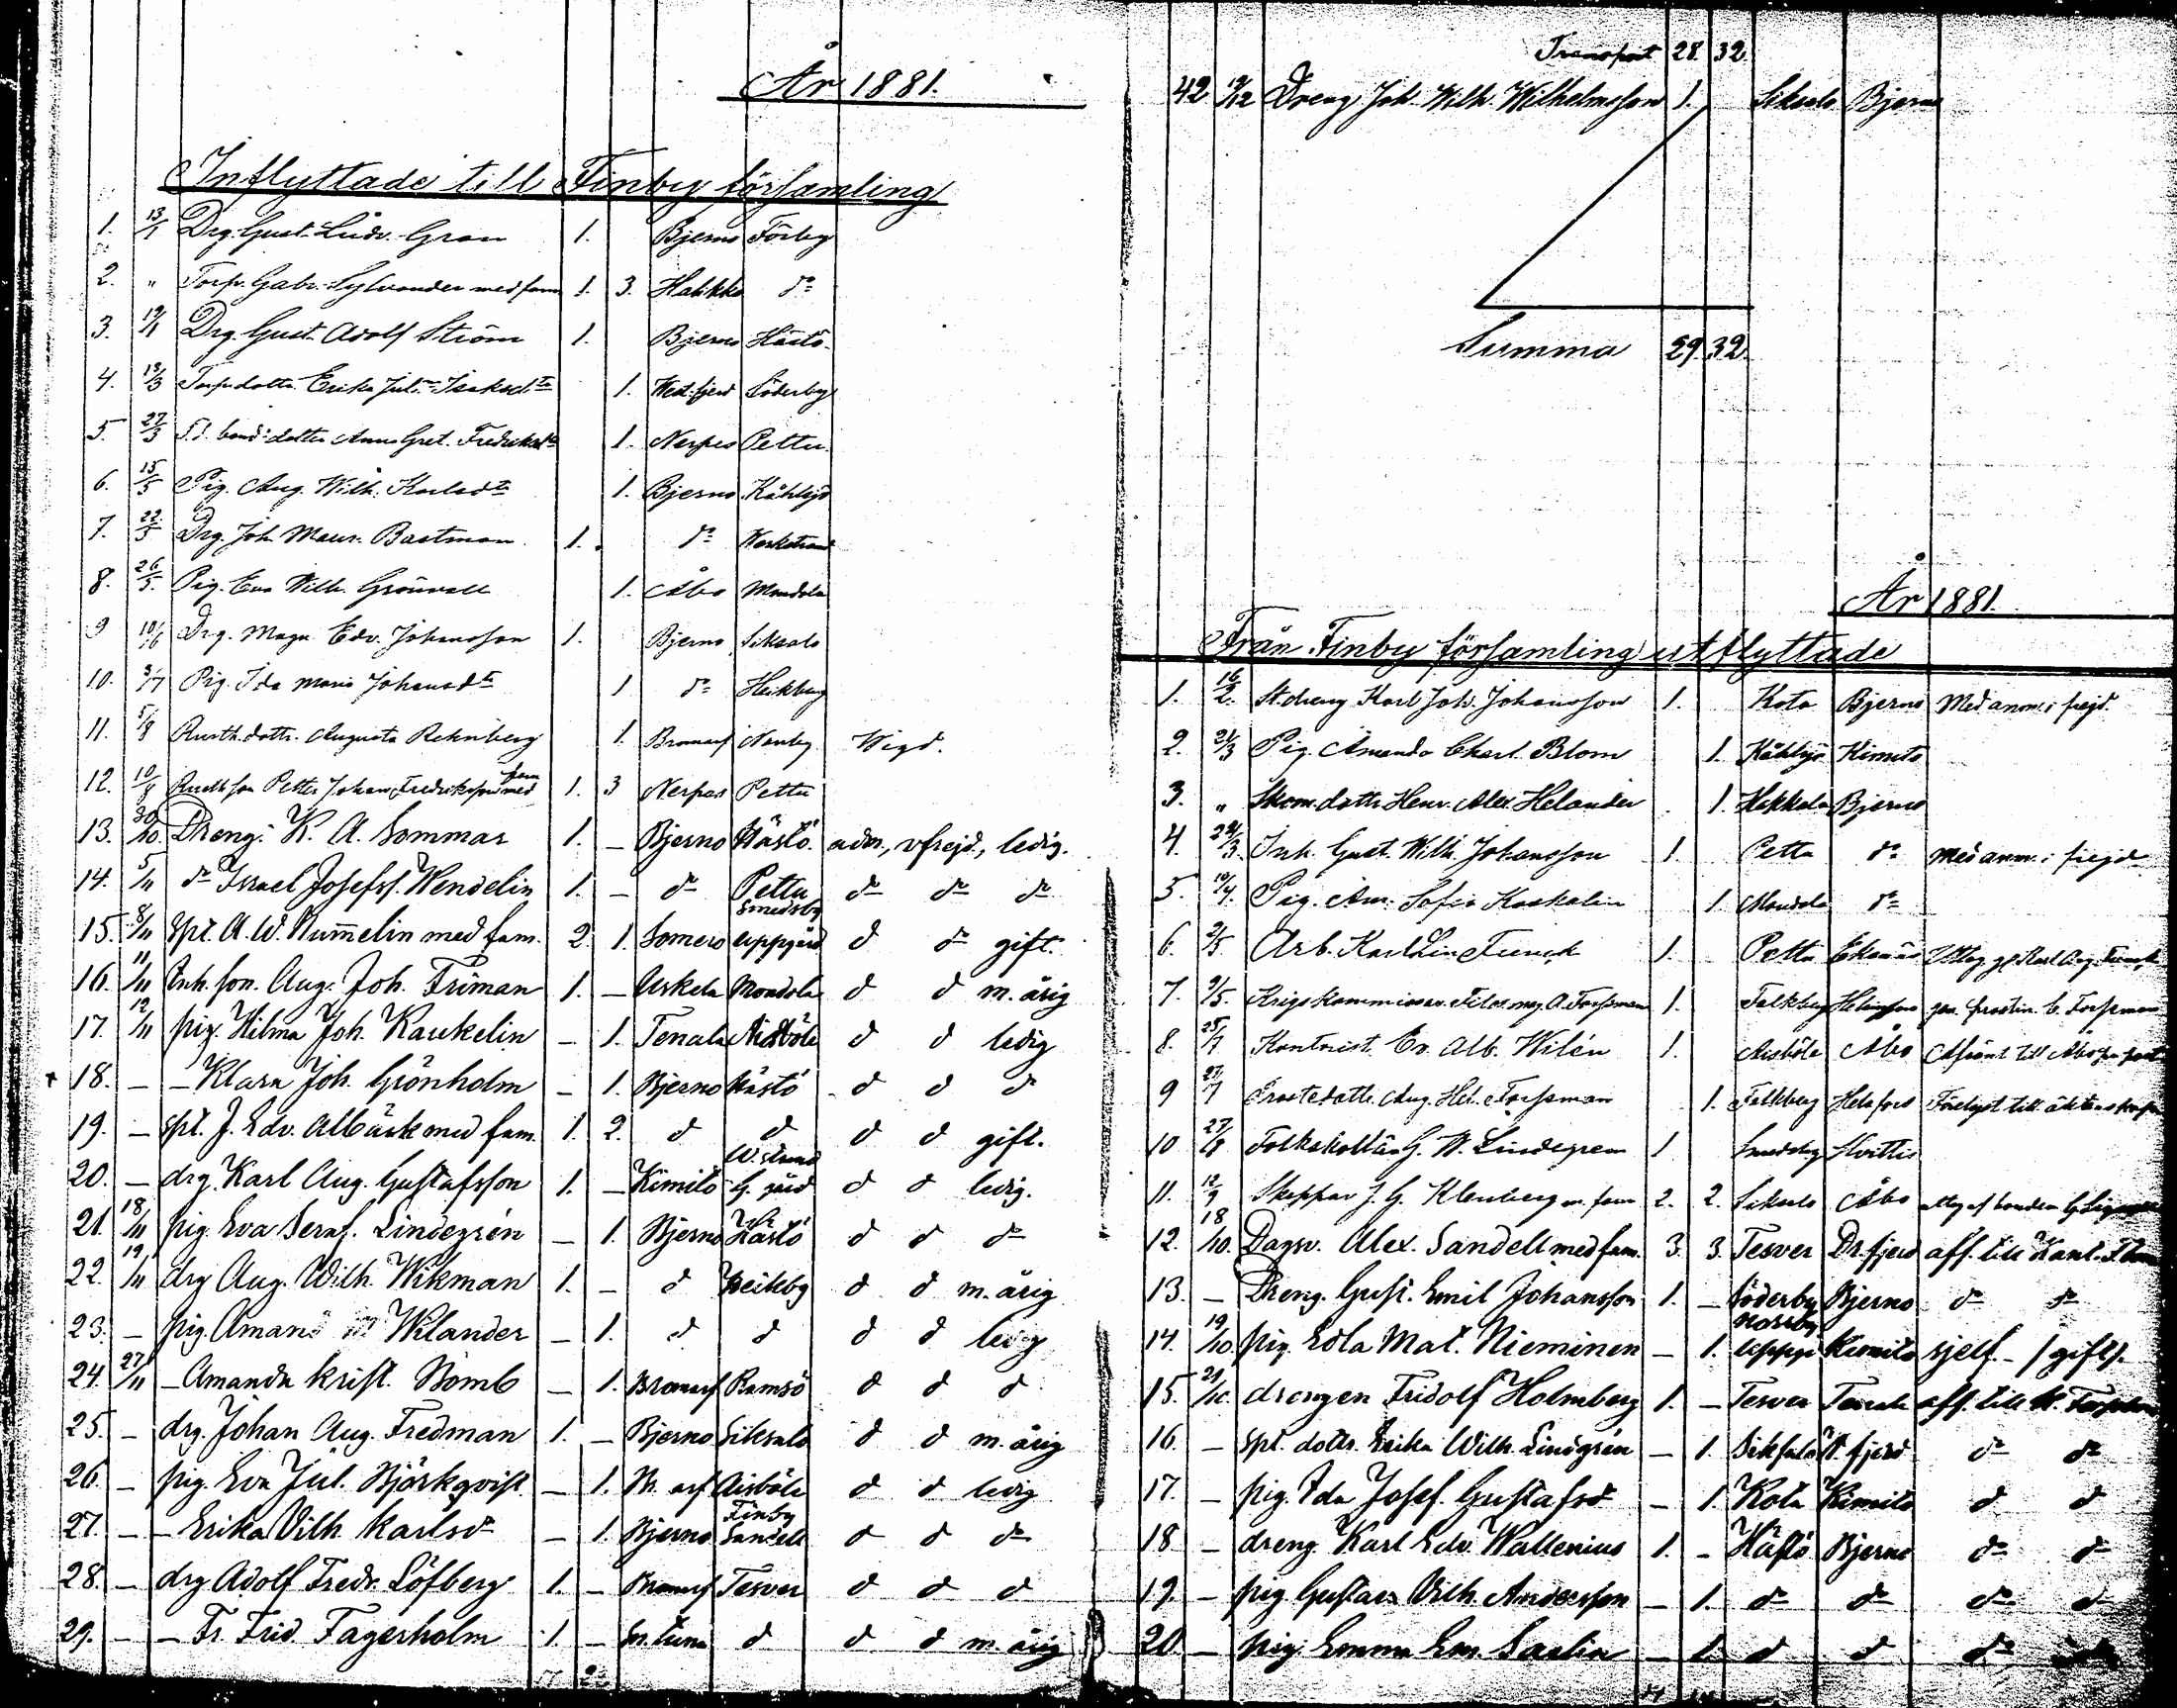 År 1881.
Inflyttade till Finby församling
1. 13/1 Drg. Gust. Ludv. Gran 1. Bjerno Förby
2. " Torp. Gabr. Sylvander med fam 1. 3. Halikko do
3. 19/1 Drg. Gust. Adolf Ström 1. Bjerno Hästö
4. 13/3 Torp.dottr. Erika Jul. Isaksdtr 1. West.fjerd Söderby
5. 27/3 bond.dotter Anna Gret. Fredriksdtr 1. Nerpes Pettu
6. 15/5 Pig. Aug. Wilh. Karlsdtr 1. Bjerno
7. 22/5 Drg. Joh. Maur. Bastman 1. do
8. 26/5. Pig. Eva Wilh. Grönvall 1. Åbo
9 10/6 Drg. Magn. Edv. Johansson 1. Bjerno Siksalo
10. 3/7 Pig. Ida Maria Johansdtr 1 do Heikby
11. 5/8 Rusth.dottr. Augusta Rehnberg 1. Bromarf Norrby Wigd.
12. 10/8 Rusth.son Petter Johan Fredriksson med fam 1. 3 Nerpes Pettu
13. 30/10. Dreng. K. A. Sommar 1. – Bjerno Hästö. adm., vfrejd., ledig.
14. 5/11 do Israel Josefss. Wendelin 1. – do Pettu do do do
15. 8/11 Spt. A. W. Num̄elin med fam. 2. 1. Somero Smedsby uppgård d do gift.
16. 11/11 Inh. son. Aug. Joh. Friman 1. – Uskela Mondola d d m. årig
17. 12/11 pig. Hilma Joh. Kaukelin – 1. Tenala d d ledig
+ 18. – – Klara Joh. Grönholm – 1. Bjerno Hästö d d d
19. – spt. J. Edv. Albäck med fam. 1. 2. d d d d gift.
20. – drg. Karl Aug. Gustafsson 1. – Kimito G. gård d d ledig.
21. 18/11 pig. Eva Seraf. Lindegrén – 1. Bjerno Hästö d d do
22. 19/11 drg Aug. Wilh. Wikman 1. – d Heikby d d m. årig
23. – pig. Amand Wilander – 1. d d d d ledig
24. 27/11 – Amanda Krist. Bomb – 1. Bromarf Ramsö d d d
25. – drg. Johan Aug. Fredman 1. – Bjerno Siksalo d d m. årig
26. – pig. Eva Jul. Björkqvist. – 1. Br. arf Aisböle d d ledig
27. – – Erika Vilh. Karlsd – 1. Bjerno Finby Sandell d d do
28. – drg Adolf Fredr. Löfberg 1. – Bromarf Tesver d d d
29. – – Fr. Frid. Fagerholm 1. – d d d m. årig
Transport 28. 32.
42 19/12 Dreng Joh. Wilh. Wilhelmsson 1. Siksalo Bjerno
Summa 29. 32.
År 1881.
Från Finby församling utflyttade
1. 16/2. St.dreng Karl Joh. Johansson 1. Kota Bjerno Med anm. i frejd.
2. 21/3 Pig. Amanda Charl. Blom 1. Kimito
3. " Skom.dottr. Henr. Alex. Helander 1. Bjerno
4. 22/3. Inh. Gust. Wilh. Johansson 1. Pettu do Med anm. i frejd
5. 10/4. Pig. Am. Sofia Kaskelin 1. Mondola do
6. 2/5 Arb. Karl Funck 1. Pettu Ekenäs
7. 9/5. A. Forssman 1. Falkberg Helsingfors gen. prostin. C. Forssman
8. 25/7 Kontorist. Alb. Wilén 1. Aisböle Åbo
9 25/7 Prostedottr. Aug. Hel. Forssman 1. Falkberg Helsfors
10 27/8 G. W. Lindegren 1 Smedsby
11. 12/9 Skeppar J. G. Klenberg m. fam 2. 2. Siksalo Åbo
12. 18/10. Dagsv. Alex. Sandell med fam. 3. 3. Tesver Dr.fjerd aff. till
13. – Dreng. Gust. Emil Johansson 1. – Söderby Bjerno do do
14. 19/10. pig. Edla Mat. Nieminen – 1. Norrby Kimito sjelf. – / gift/.
15. 21/10. drengen Fridolf Holmberg 1. – Tesver Tenala aff. till
16. – spt. dottr. Erika Wilh. Lindgrén – 1. Siksalo fjerd do do
17. – pig. Ida Josef. Gustafsd – 1. Kota Kimito d d
18 – dreng Karl Edv. Wallenius 1. – Hästö Bjerno do d
19. – pig. Gustava Vilh. Andersson – 1. do do do d
20. – pig. Emma Em. Saslin – 1. d d do